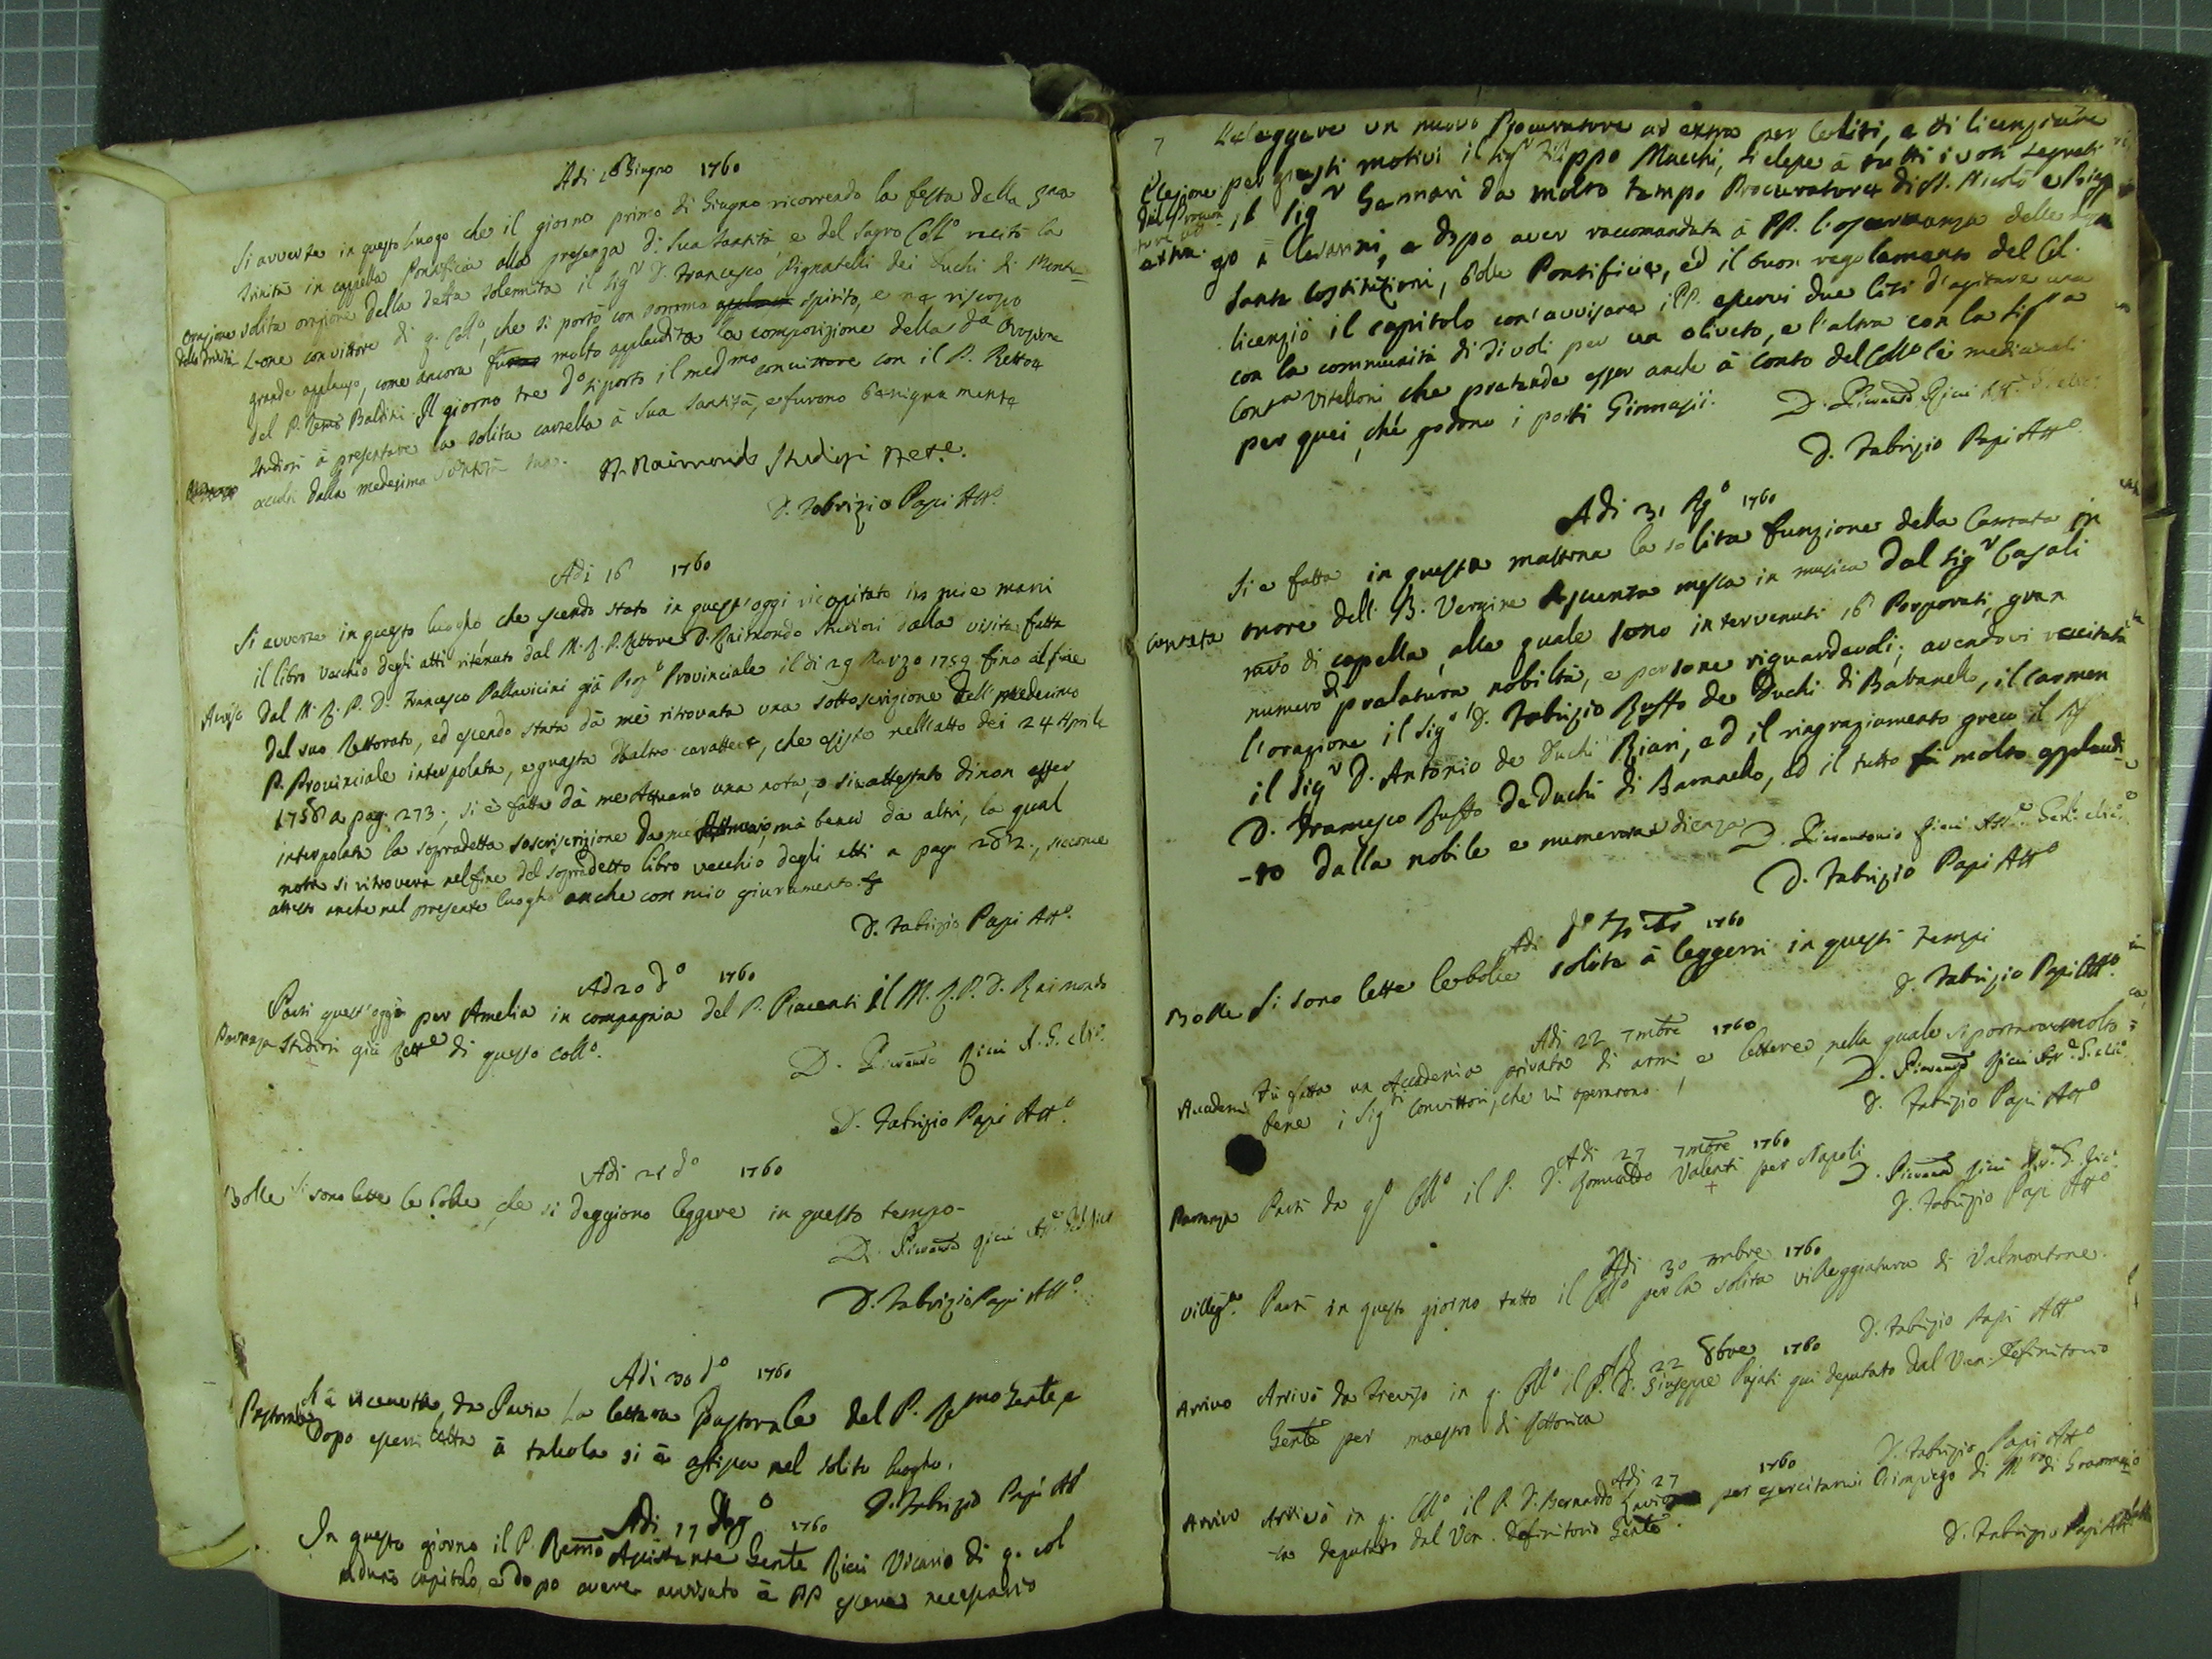 Adi 16 Giugno 1760
Si avverte in questo luogo che il giorno primo di Giugno ricorrendo la festa della SSma
Trinità in cappella Pontificia alla presenza di Sua Santità e del Sagro Collo recitò la
Orazione solita orazione della detta solennità il Sigr D. Francesco Pignatelli dei Duchi di Monte=
della Trinità Leone convittore di q. Collo, che si portò con sommo spirito, e ne riscosse
grande applauso, come ancora fu molto applaudita la composizione della da Orazione
del P. Baldini. Il giorno tre do si portò il medmo convittore con il P. Rettore
Studiosi à presentare la solita cartella à Sua Santità, e furono benignamente
accolti dalla medesima Santità Sua.
D. Raimondo Studiosi Rete.
D. Fabrizio Papi Atto.
Adi 16 1760
Si avverte in questo luogho che essendo stato in quest'oggi ricapitato in mie mani
il libro vecchio degli atti ritenuto dal M. R. P. Rettore D. Raimondo Studiosi dalla visita fatta
Avviso dal M. R. P. D. Francesco Pallavicini già Provinciale il di 29 Marzo 1759 fino al fine
del suo Rettorato, ed essendo stata dà mè ritrovata una sottoscrizione dell medesimo
P. Provinciale interpolata, e guasta d'altro carattere, che esiste nell'atto dei 24 Aprile
1758 a pag. 273; si è fatta dà me Attuario una nota, o sia attestato di non esser
interpolata la sopradetta soscriscrizione da me Attuario, mà bensì da altri, la qual
nota si ritroverà nel fine del sopradetto libro vecchio degli atti a pag. 282., siccome
attesto anche nel presente luogho anche con mio giuramento.
D. Fabrizio Papi Atto.
Ad 20 do 1760
Partì quest'oggi per Amelia in compagnia del P. Piacenti il M. R. P. D. Raimondo
Partenza Studiosi già Rette di questo Collo.
D. Ricci A. G. e Vic.
D. Fabrizio Papi Atto.
Adi 21 do 1760
Bolle Si sono lette le bolle, che si deggiono leggere in questo tempo-
D. Ricci
D. Fabrizio Papi Atto.
Adi 30 do 1760
Pastorale Si è ricevuta da Pavia la lettera Pastorale del P. Rmo Gente, e
dopo essersi letta à tavola si è affissa nel solito luogho.
D. Fabrizio Papi Atto
Adi 17 1760
In questo giorno il P. Remo Assistente Gente Ricci Vicario di q. Col
radunò capitolo, e dopo avere avvisato à PP essere necessario
7 eleggere un nuovo Procuratore ad extra per le liti, e di licenziare
Elezione per giusti motivi il Sigr Filippo Macchi, si elesse à tutti i voti segreti
del Procura-
tore ad extra. il Sigr Gennari da molto tempo Procuratore di SS. Nicolò e Biag
gio a Cesarini, e dopo aver raccomandata à PP. l'osservanza delle
Sante Costituzioni, bolle Pontificie, ed il buon regolamento del Col.
licenziò il capitolo con avvisare i PP. esservi due liti d'agitare una
con la communità di Tivoli per un oliveto, e l'altra con la Siga
Contsa Vitelloni che pretende esser anche à conto del Collo le medicinali
per quei, ché godono i posti Ginnasii.
D. Ricci
D. Fabrizio Papi Atto.
Adi 31 Ago 1760
Si è fatta in questa mattina la solita funzione della Cantata in
Cantata onore dell. B. Vergine Assunta messa in musica dal Sigr Casali
mro di capella, alla quale sono intervenuti 16 Porporati, gran
numero di prelatura nobiltà, e persone riguardevoli; avendovi recitata
l'orazione il Sigr D. Fabrizio Ruffo de Duchi di Baranello, il carmen
il Sigr D. Antonio de Duchi Riari, ed il ringraziamento greco il Sigr
D. Francesco Ruffo de Duchi di Baranello, ed il tutto fù molto applaudi=
-to dalla nobile e numerosa udienza
D. Pierantonio Ricci
D. Fabrizio Papi Atto
Adi 7mbre 1760
Bolle Si sono lette le bolle solite à leggersi in questi tempi
D. Fabrizio Papi Atto.
Adi 22 7mbre 1760
Accademia Fù fatta un Accademia privata di armi, e lettere, nella quale si portarono molto
bene i Sigri Convittori, che vi operarono.
D. Ricci
D. Fabrizio Papi Atto
Adi 27 7mbre 1760
Partenza Partì da qo Collo il P. D. Romualdo Valenti per Napoli
D. Ricci
D. Fabrizio Papi Atto
Adi 30 7mbre 1760
Villega. Partì in questo giorno tutto il Collo per la solita villeggiatura di Valmontone.
D. Fabrizio Papi Atto
Adi 22 8bre 1760
Arrivo Arrivò da Treviso in q. Collo il P. D. Giuseppe Pujati qui deputato dal Ven. Definitorio
Gente per maestro di Rettorica
D. Fabrizio Papi Atto
Adi 27 1760
Arrivo Arrivò in q. Collo il P. D. Bernardo per esercitarvi l'impiego di Mro di Grammati
-ca deputato dal Ven. Definitorio Gente.
D. Fabrizio Papi Atto